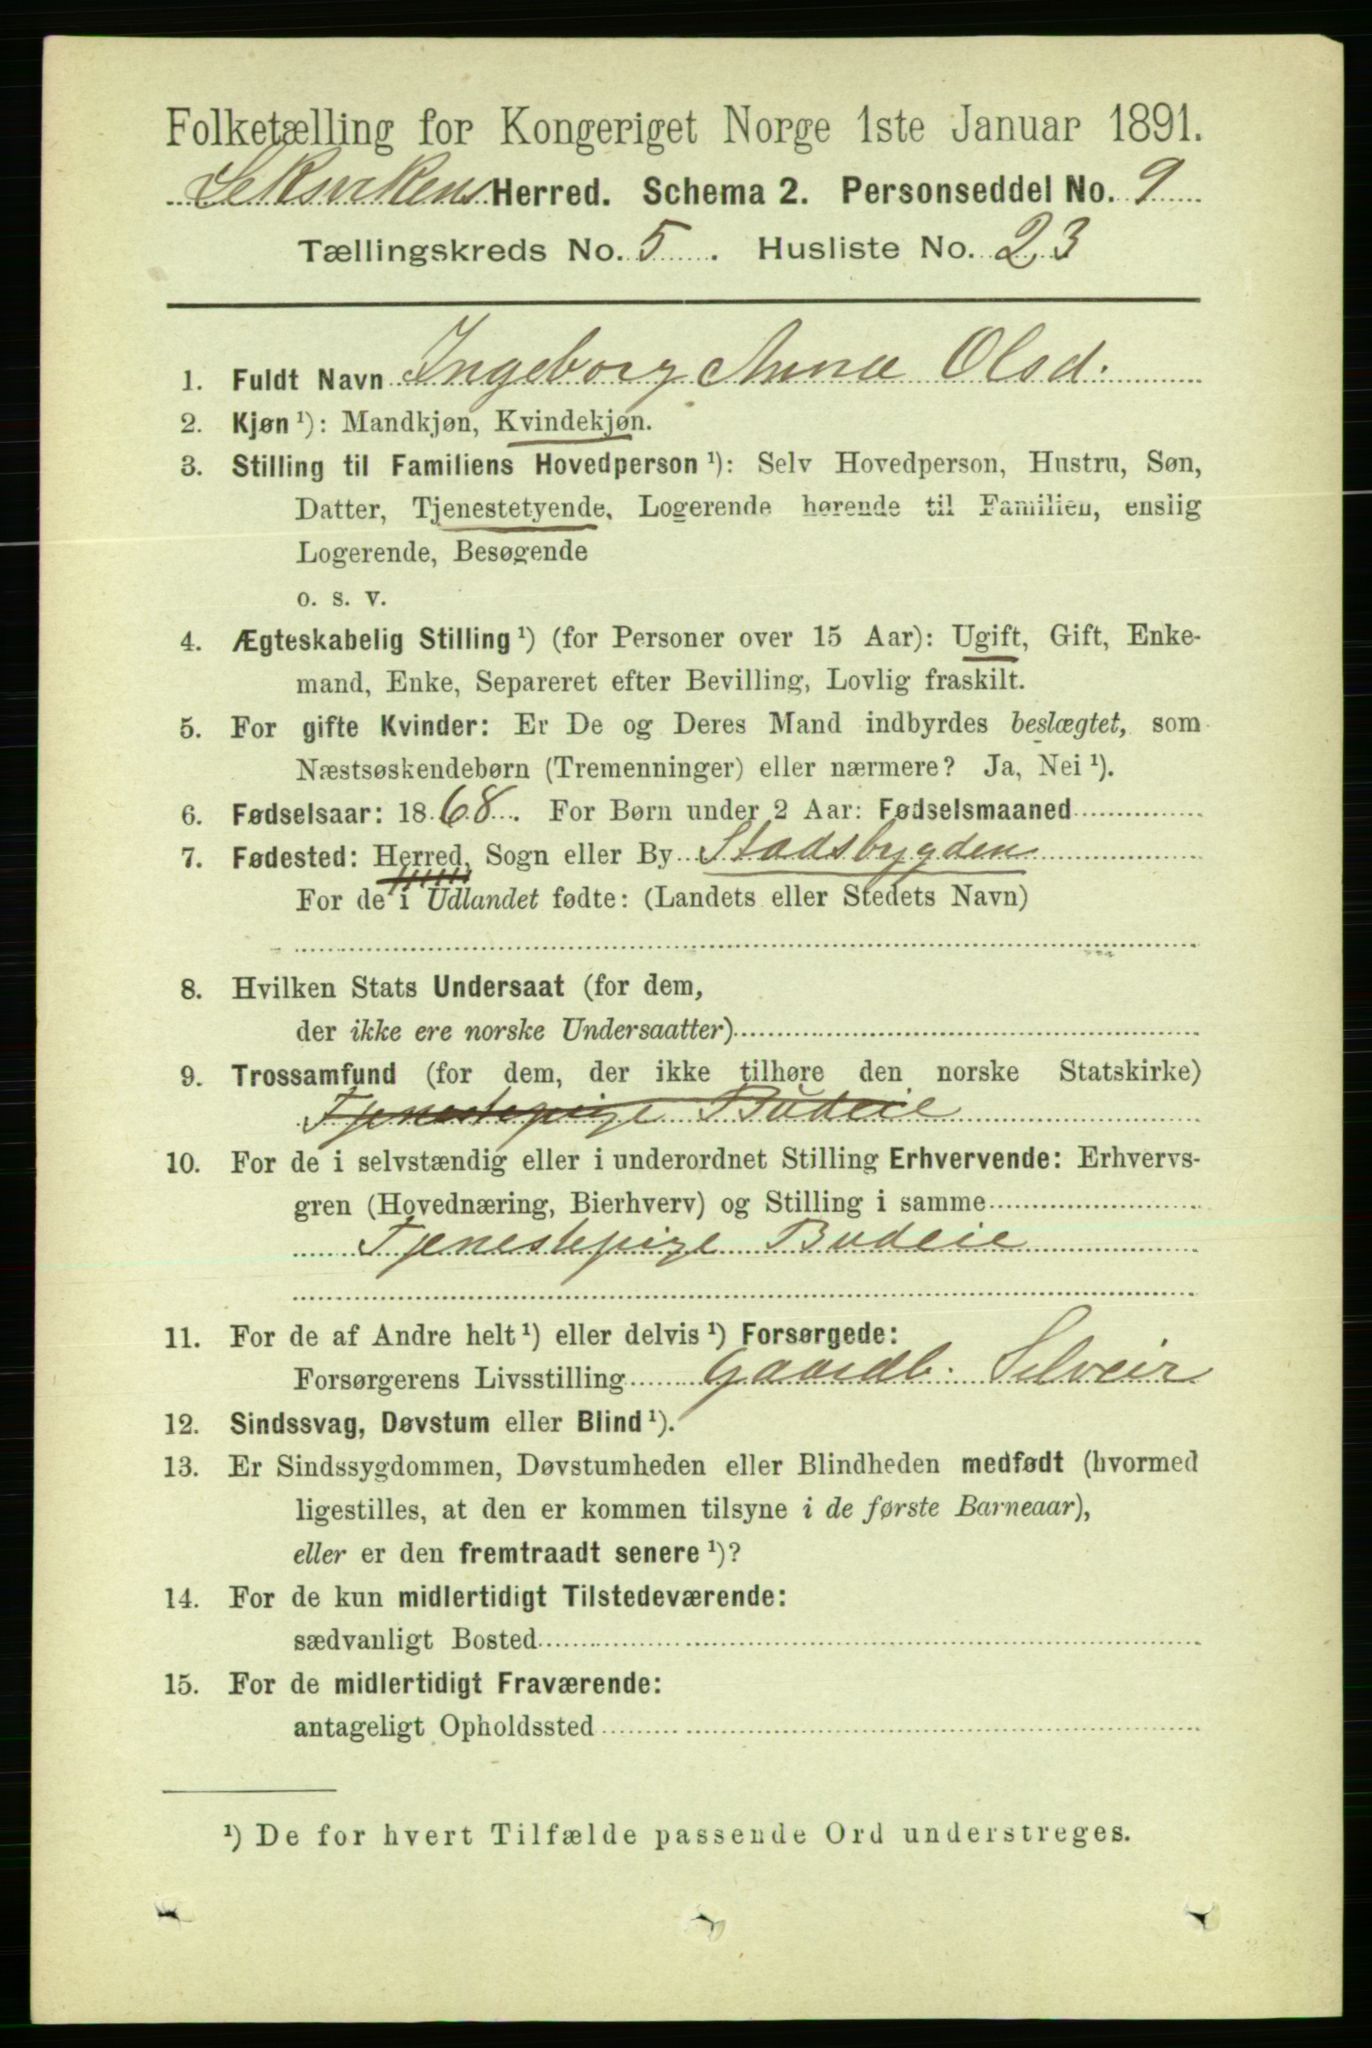 Folketælling for Kongeriget Norge 1ste Januar 1891.
Leksvikens Herred. Schema 2. Personseddel No. 9
Tællingskreds No. 5. Husliste No. 23
1. Fuldt Navn Ingeborg Anna Olsd.
2. Kjøn ¹): Mandkjøn, Kvindekjøn.
3. Stilling til Familiens Hovedperson ¹): Selv Hovedperson, Hustru, Søn,
Datter, Tjenestetyende, Logerende hørende til Familien, enslig
Logerende, Besøgende
o. s. v.
4. Ægteskabelig Stilling ¹) (for Personer over 15 Aar): Ugift, Gift, Enke-
mand, Enke, Separeret efter Bevilling, Lovlig fraskilt.
5. For gifte Kvinder: Er De og Deres Mand indbyrdes beslægtet, som
Næstsøskendebørn (Tremenninger) eller nærmere? Ja, Nei ¹).
6. Fødselsaar: 1868. For Børn under 2 Aar: Fødselsmaaned
7. Fødested: Herred, Sogn eller By Stadsbygden
For de i Udlandet fødte: (Landets eller Stedets Navn)
8. Hvilken Stats Undersaat (for dem,
der ikke ere norske Undersaatter)
9. Trossamfund (for dem, der ikke tilhøre den norske Statskirke)
Tjenestepige Budeie
10. For de i selvstændig eller i underordnet Stilling Erhvervende: Erhvervs-
gren (Hovednæring, Bierhverv) og Stilling i samme
Tjenestepige Budeie
11. For de af Andre helt ¹) eller delvis ¹) Forsørgede:
Forsørgerens Livsstilling Gaardb. Selveir
12. Sindssvag, Døvstum eller Blind ¹).
13. Er Sindssygdommen, Døvstumheden eller Blindheden medfødt (hvormed
ligestilles, at den er kommen tilsyne i de første Barneaar),
eller er den fremtraadt senere ¹)?
14. For de kun midlertidigt Tilstedeværende:
sædvanligt Bosted
15. For de midlertidigt Fraværende:
antageligt Opholdssted
¹) De for hvert Tilfælde passende Ord understreges.